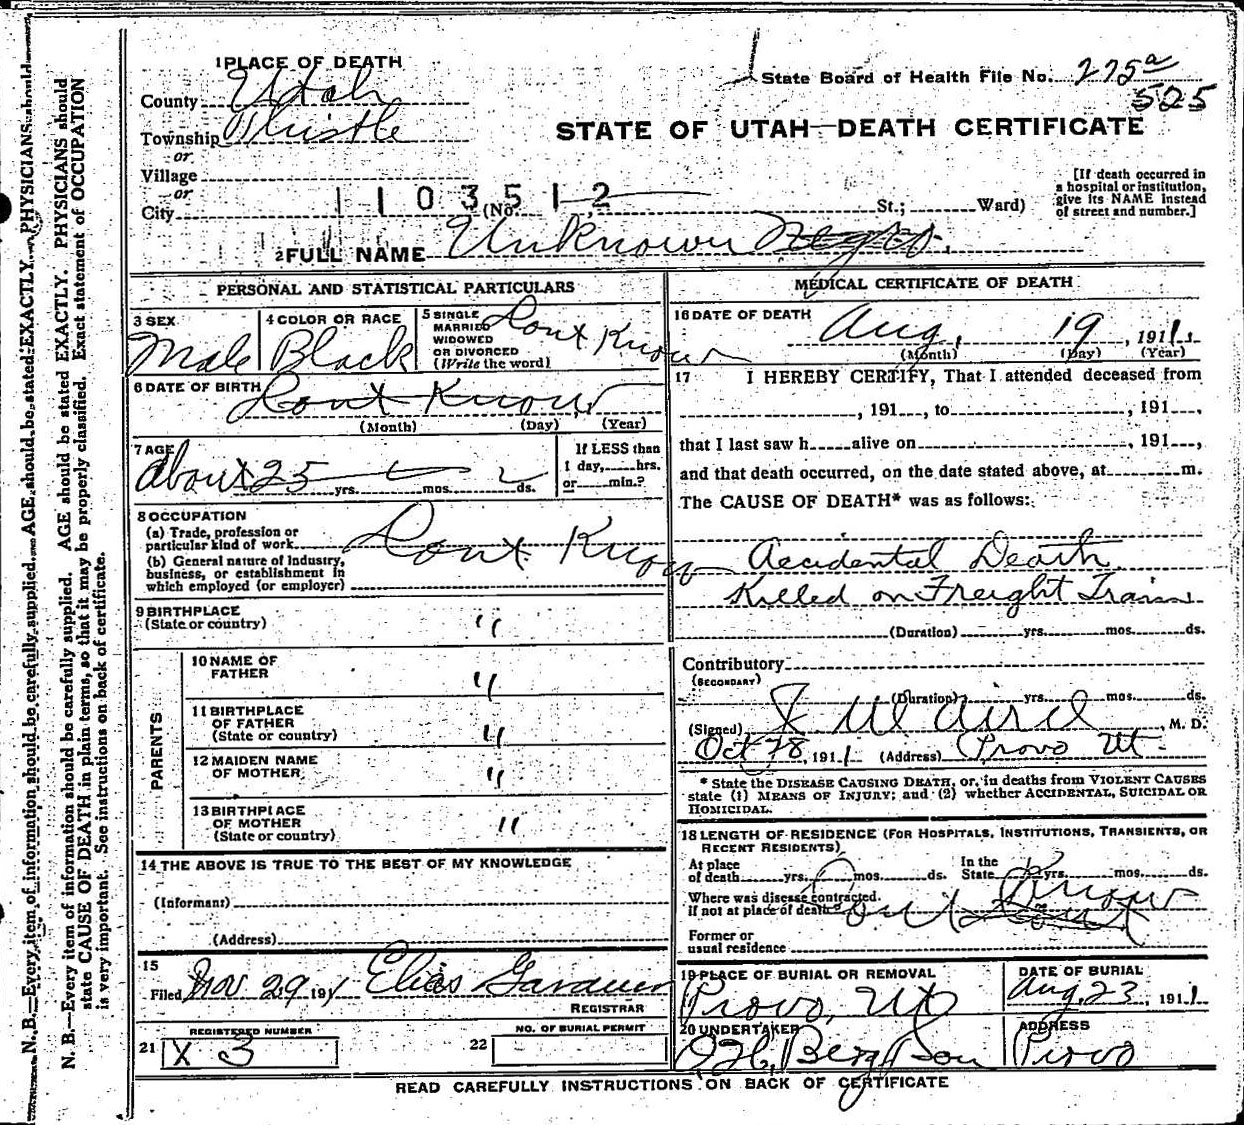 N. B.—Every item of information should be carefully supplied. AGE should be stated EXACTLY. PHYSICIANS should
N. B.—Every item of information should be carefully supplied. AGE should be stated EXACTLY. PHYSICIANS should
state CAUSE OF DEATH in plain terms, so that it may be properly classified. Exact statement of OCCUPATION
is very important. See instructions on back of certificate.
1 PLACE OF DEATH
State Board of Health File No. 275a
525
County Utah
Township Thistle
STATE OF UTAH—DEATH CERTIFICATE
or
Village
or
City
1103512
(No. St.; Ward)
[If death occurred in
a hospital or institution,
give its NAME instead
of street and number.]
2 FULL NAME Unknown Negro.
PERSONAL AND STATISTICAL PARTICULARS
3 SEX
Male
4 COLOR OR RACE
Black
5 SINGLE
MARRIED
WIDOWED
OR DIVORCED
(Write the word)
Dont Know
6 DATE OF BIRTH
Dont Know
(Month) (Day) (Year)
7 AGE
about 25 yrs. mos. ds.
If LESS than
1 day, hrs.
or min.?
8 OCCUPATION
(a) Trade, profession or
particular kind of work
(b) General nature of industry,
business, or establishment in
which employed (or employer)
Dont Know
9 BIRTHPLACE
(State or country)
"
PARENTS
10 NAME OF
FATHER
"
11 BIRTHPLACE
OF FATHER
(State or country)
"
12 MAIDEN NAME
OF MOTHER
"
13 BIRTHPLACE
OF MOTHER
(State or country)
"
14 THE ABOVE IS TRUE TO THE BEST OF MY KNOWLEDGE
(Informant)
(Address)
15
Filed Nov 29 191 Elias Gardner
REGISTRAR
REGISTERED NUMBER
21 X 3
NO. OF BURIAL PERMIT
22
MEDICAL CERTIFICATE OF DEATH
16 DATE OF DEATH
Aug, 19, 1911.
(Month) (Day) (Year)
17 I HEREBY CERTIFY, That I attended deceased from
, 191 , to , 191 ,
that I last saw h alive on , 191 ,
and that death occurred, on the date stated above, at m.
The CAUSE OF DEATH* was as follows:
Accidental Death
Killed on Freight Train
(Duration) yrs. mos. ds.
Contributory
(SECONDARY)
(Duration) yrs. mos. ds.
(Signed) M. D.
Oct 28, 1911 (Address) Provo Ut.
* State the DISEASE CAUSING DEATH, or, in deaths from VIOLENT CAUSES
state (1) MEANS OF INJURY; and (2) whether ACCIDENTAL, SUICIDAL OR
HOMICIDAL.
18 LENGTH OF RESIDENCE (FOR HOSPITALS, INSTITUTIONS, TRANSIENTS, OR
RECENT RESIDENTS)
At place
of death yrs. mos. ds.
In the
State yrs. mos. ds.
Where was disease contracted,
if not at place of death?
Dont Know
Former or
usual residence
19 PLACE OF BURIAL OR REMOVAL
Provo, Ut
DATE OF BURIAL
Aug, 23, 1911
20 UNDERTAKER
Berg & Son
ADDRESS
Provo
READ CAREFULLY INSTRUCTIONS ON BACK OF CERTIFICATE